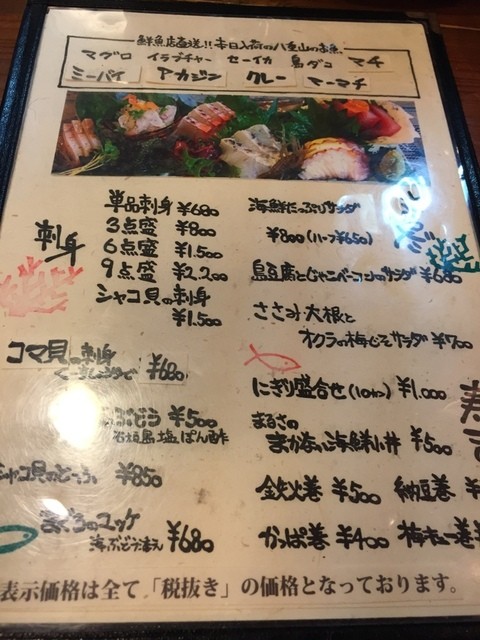 鮮魚店直送!!本日入荷の八重山のお魚
マグロ イラブチャー セーイカ 島ダコ マチ
ミーバイ アカジン クレー マーマチ
刺身
単品刺身 ¥680
3点盛 ¥800
6点盛 ¥1,500
9点盛 ¥2,200
シャコ貝の刺身
¥1,500
コマ貝の刺身
¥680
ぶどう ¥500
石垣島塩ぽん酢
¥850
まぐろのユッケ
海ぶどう添え ¥680
海鮮たっぷりサラダ
¥800(ハーフ¥650)
島豆腐とじゃこベーコンのサラダ ¥680
ささみ大根と
オクラの梅じそサラダ ¥700
寿司
にぎり盛合せ(10ヶ) ¥1,000
まるさの
まかない海鮮小丼 ¥500
鉄火巻 ¥500 納豆巻 ¥
かっぱ巻 ¥400 梅キュー巻 ¥
表示価格は全て「税抜き」の価格となっております。